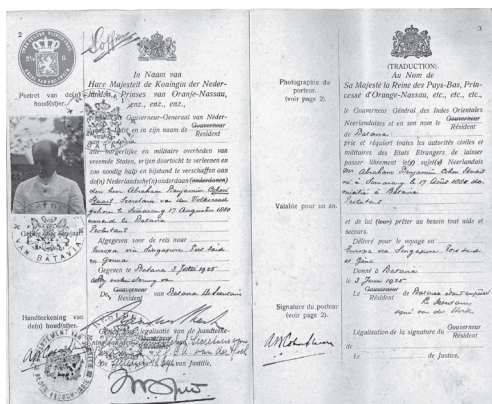 2
In Naam van
Hare Majesteit de Koningin der Neder-
landen, Prinses van Oranje-Nassau,
enz., enz., enz.,
Portret van de(n)
houd(st)er.
Gouverneur-Generaal van Neder-
Indië en in zijn naam de Gouverneur
Resident
van Batavia
burgerlijke en militaire overheden van
vreemde Staten, vrijen doortocht te verleenen en
zoo noodig hulp en bijstand te verschaffen aan
de(n) Nederlandsche(n) onderdaan (onderdanen)
den heer Abraham Benjamin Cohen
Stuart, Secretaris van den Volksraad
geboren te Semarang 17 Augustus 1880
wonende te Batavia
Protestant
VAN BATAVIA
Afgegeven voor de reis naar
Europa via Singapore Port Said
en Genua
Gegeven te Batavia 3 1925
De Gouverneur
Resident
van Batavia
Handteekening van
de(n) houd(st)er.
legalisatie van de handteeke-
van Justitie,
3
(TRADUCTION.)
Au Nom de
Sa Majesté la Reine des Pays-Bas, Prin-
cesse d'Orange-Nassau, etc., etc., etc.,
Photographie du
porteur.
(voir page 2).
le Gouverneur Général des Indes Orientales
Néerlandaises et en son nom le Gouverneur
Résident
de Batavia
prie et requiert toute les autorités civiles et
militaires des Etats Etrangers de laisser
passer librement le(s) sujet(s) Neerlandais
Mr Abraham Benjamin Cohen Stuart
né à Semarang le 17 Août 1880 do-
micilié à Batavia
Protestant
Valable pour un an.
et de lui (leur) prêter au besoin tout aide et
secours.
Délivré pour le voyage en
Europe via Singapore Port Said
et Gênes
Donné à Batavia
le 3 Juin 1925
Le Gouverneur
Résident
de Batavia
Signature du porteur
(voir page 2).
Légalisation de la signature du Gouverneur
Résident
de
Le de Justice.